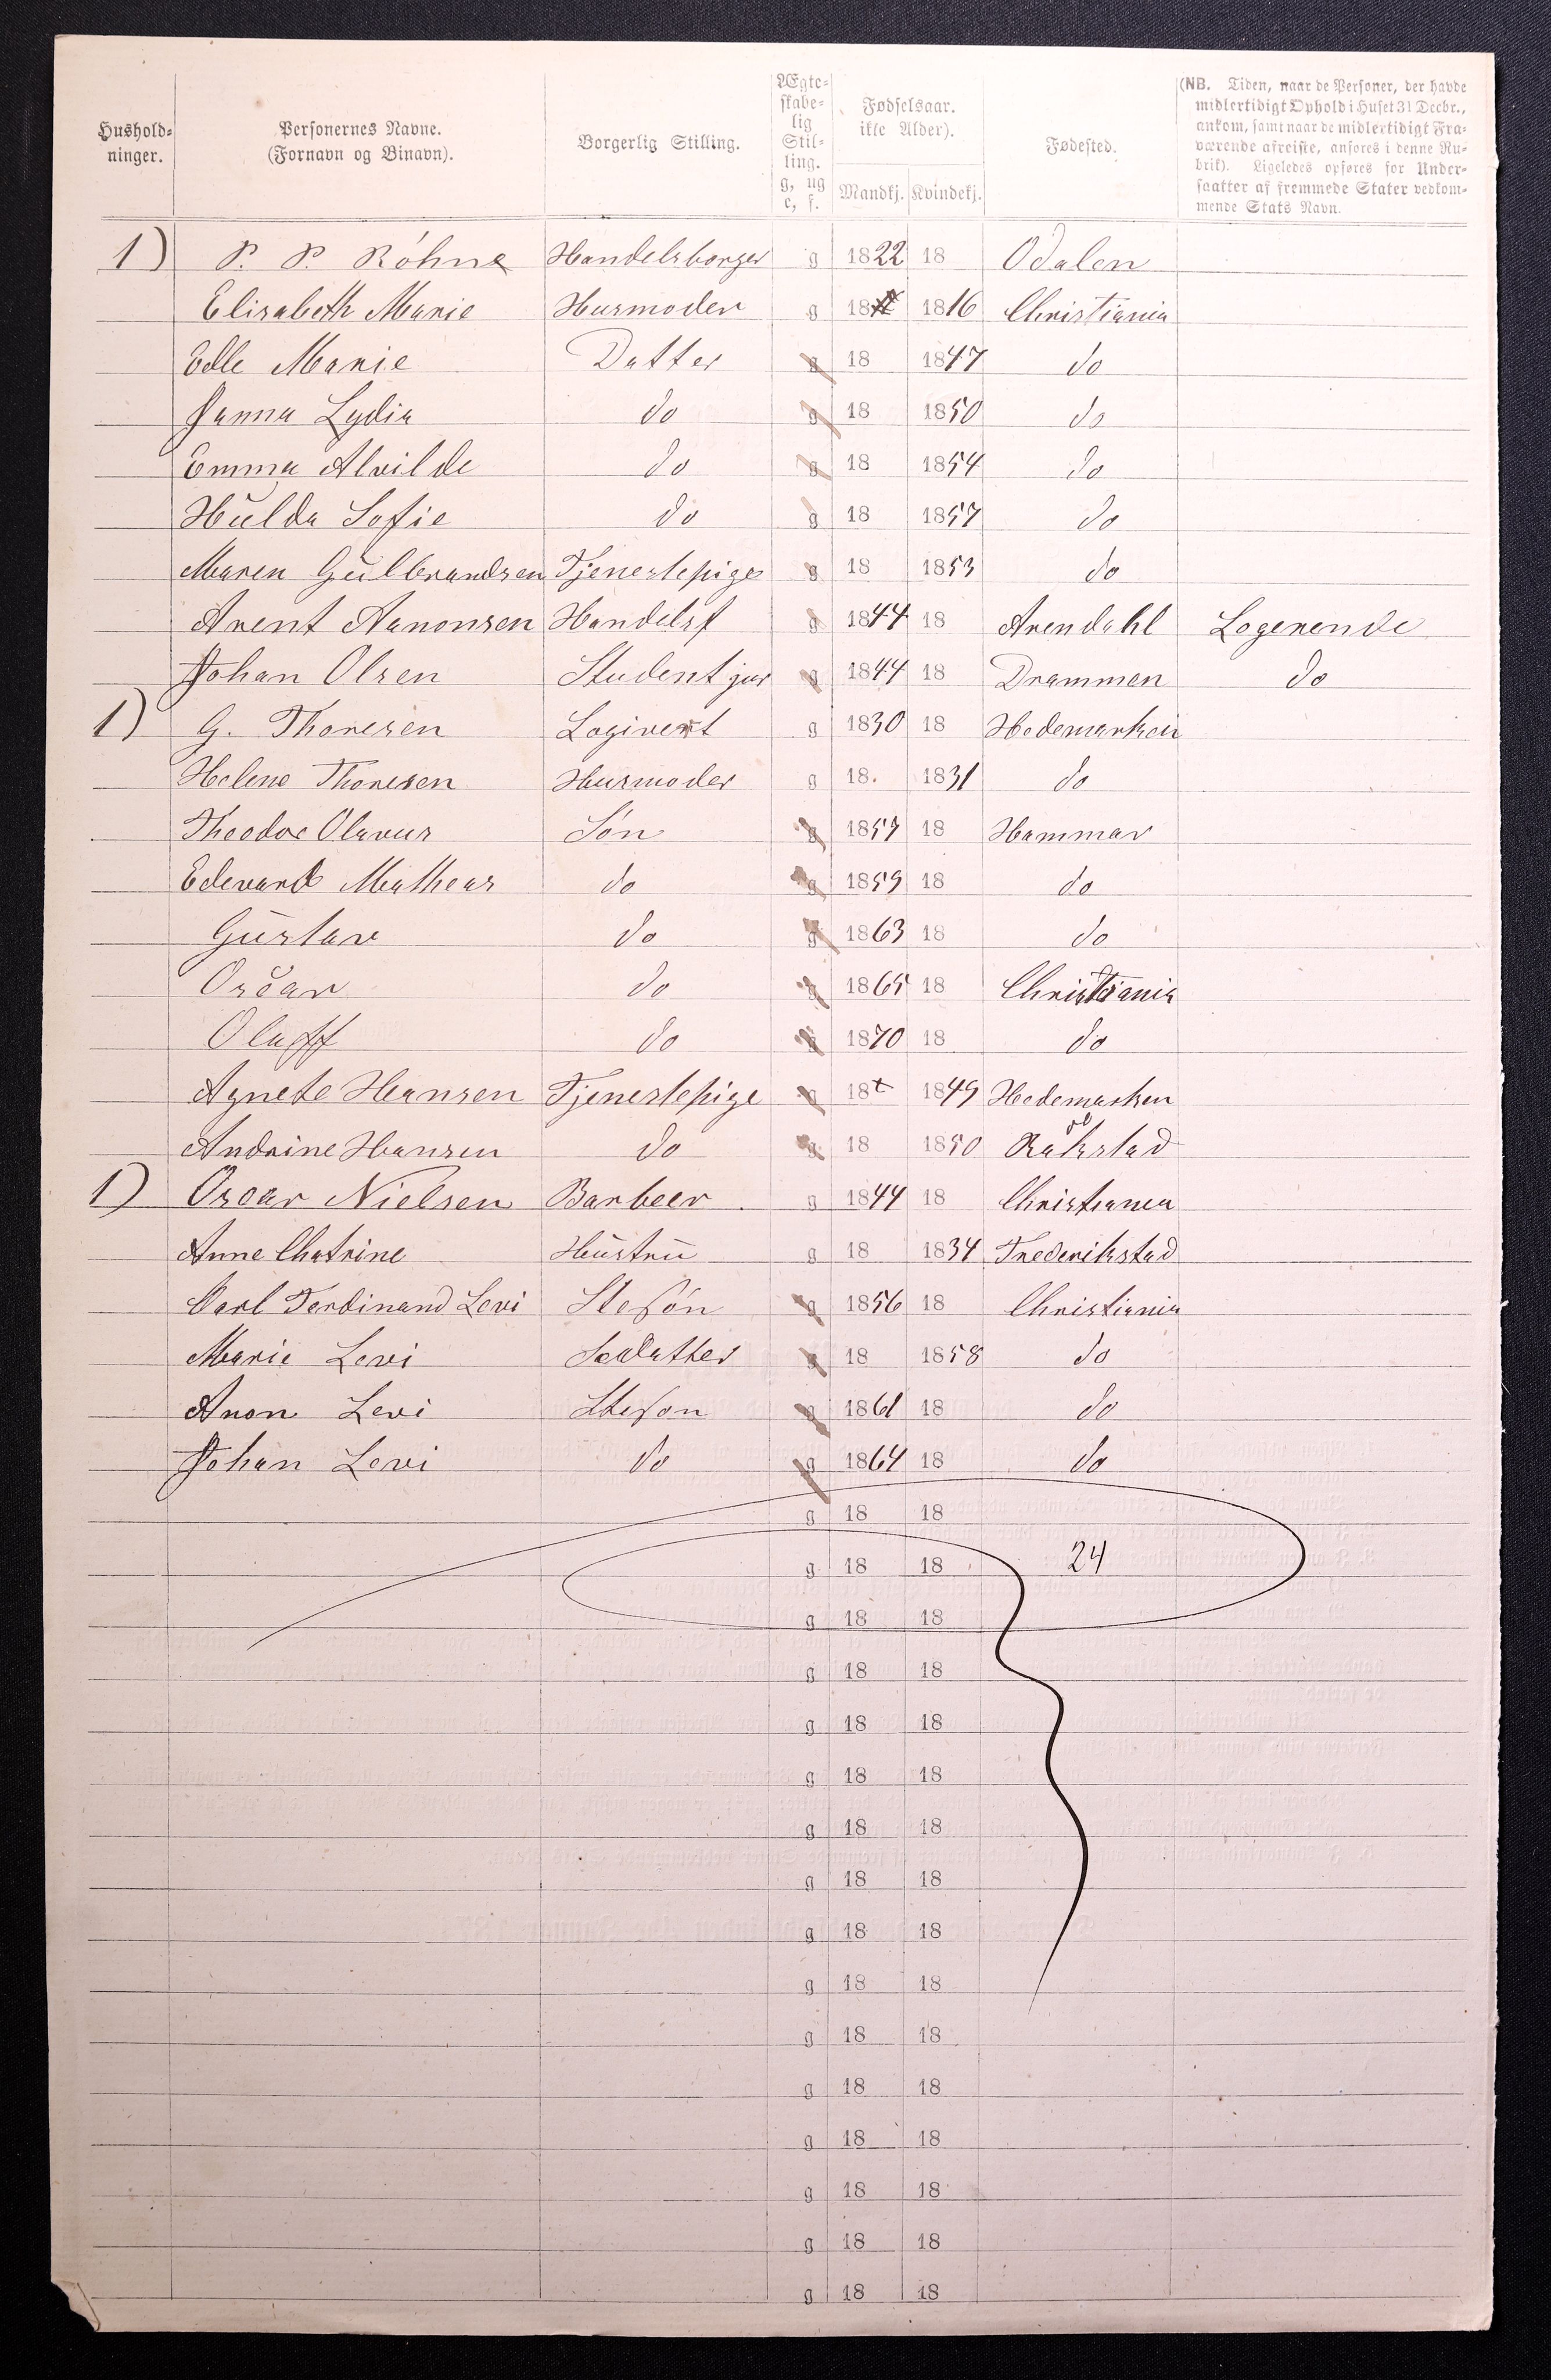 Hushold-
ninger.
Personernes Navne.
(Fornavn og Binavn).
Borgerlig Stilling.
Ægte-
skabe-
lig
Stil-
ling.
g, ug
e, f.
Fødselsaar.
ikke Alder).
Mandkj. Kvindekj.
Fødested.
(NB. Tiden, naar de Personer, der havde
midlertidigt Ophold i Huset 31 Decbr.,
ankom, samt naar de midlertidigt Fra-
værende afreiste, anføres i denne Ru-
brik). Ligeledes opføres for Under-
saatter af fremmede Stater vedkom-
mende Stats Navn.
1) P. P. Röhne Handelsborger g 1822 18 Odalen
Elisabeth Marie Husmoder g 18 1816 Christiania
Edle Marie Datter g 18 1847 do
Janna Lydia do g 18 1850 do
Emma Alvilde do g 18 1854 do
Hulda Sofie do g 18 1857 do
Maren Gulbrandsen Tjenestepige g 18 1853 do
Arent Aanonsen Handelsf g 1844 18 Arendahl Logerende
Johan Olsen Student jur g 1844 18 Drammen do
1) G. Thoresen Logivert g 1830 18 Hedemarken
Helene Thoresen Husmoder g 18 1831 do
Theodor Olavus Søn g 1857 18 Hammar
Edevard Matheas do g 1859 18 do
Gustav do g 1863 18 do
Oscar do g 1865 18 Christiania
Olaff do g 1870 18 do
Agnete Hansen Tjenestepige g 18 1849 Hedemarken
Andrine Hansen do g 18 1850 Rakstad
1) Oscar Nielsen Barbeer g 1844 18 Christiania
Anne Chatrine Hustru g 18 1834 Frederikstad
Carl Ferdinand Levi Stesøn g 1856 18 Christiania
Marie Levi g 18 1858 do
Aron Levi Steson g 1861 18 do
Johan Levi do g 1864 18 do
g 18 18
g 18 18 24
g 18 18
g 18 18
g 18 18
g 18 18
g 18 18
g 18 18
g 18 18
g 18 18
g 18 18
g 18 18
g 18 18
g 18 18
g 18 18
g 18 18